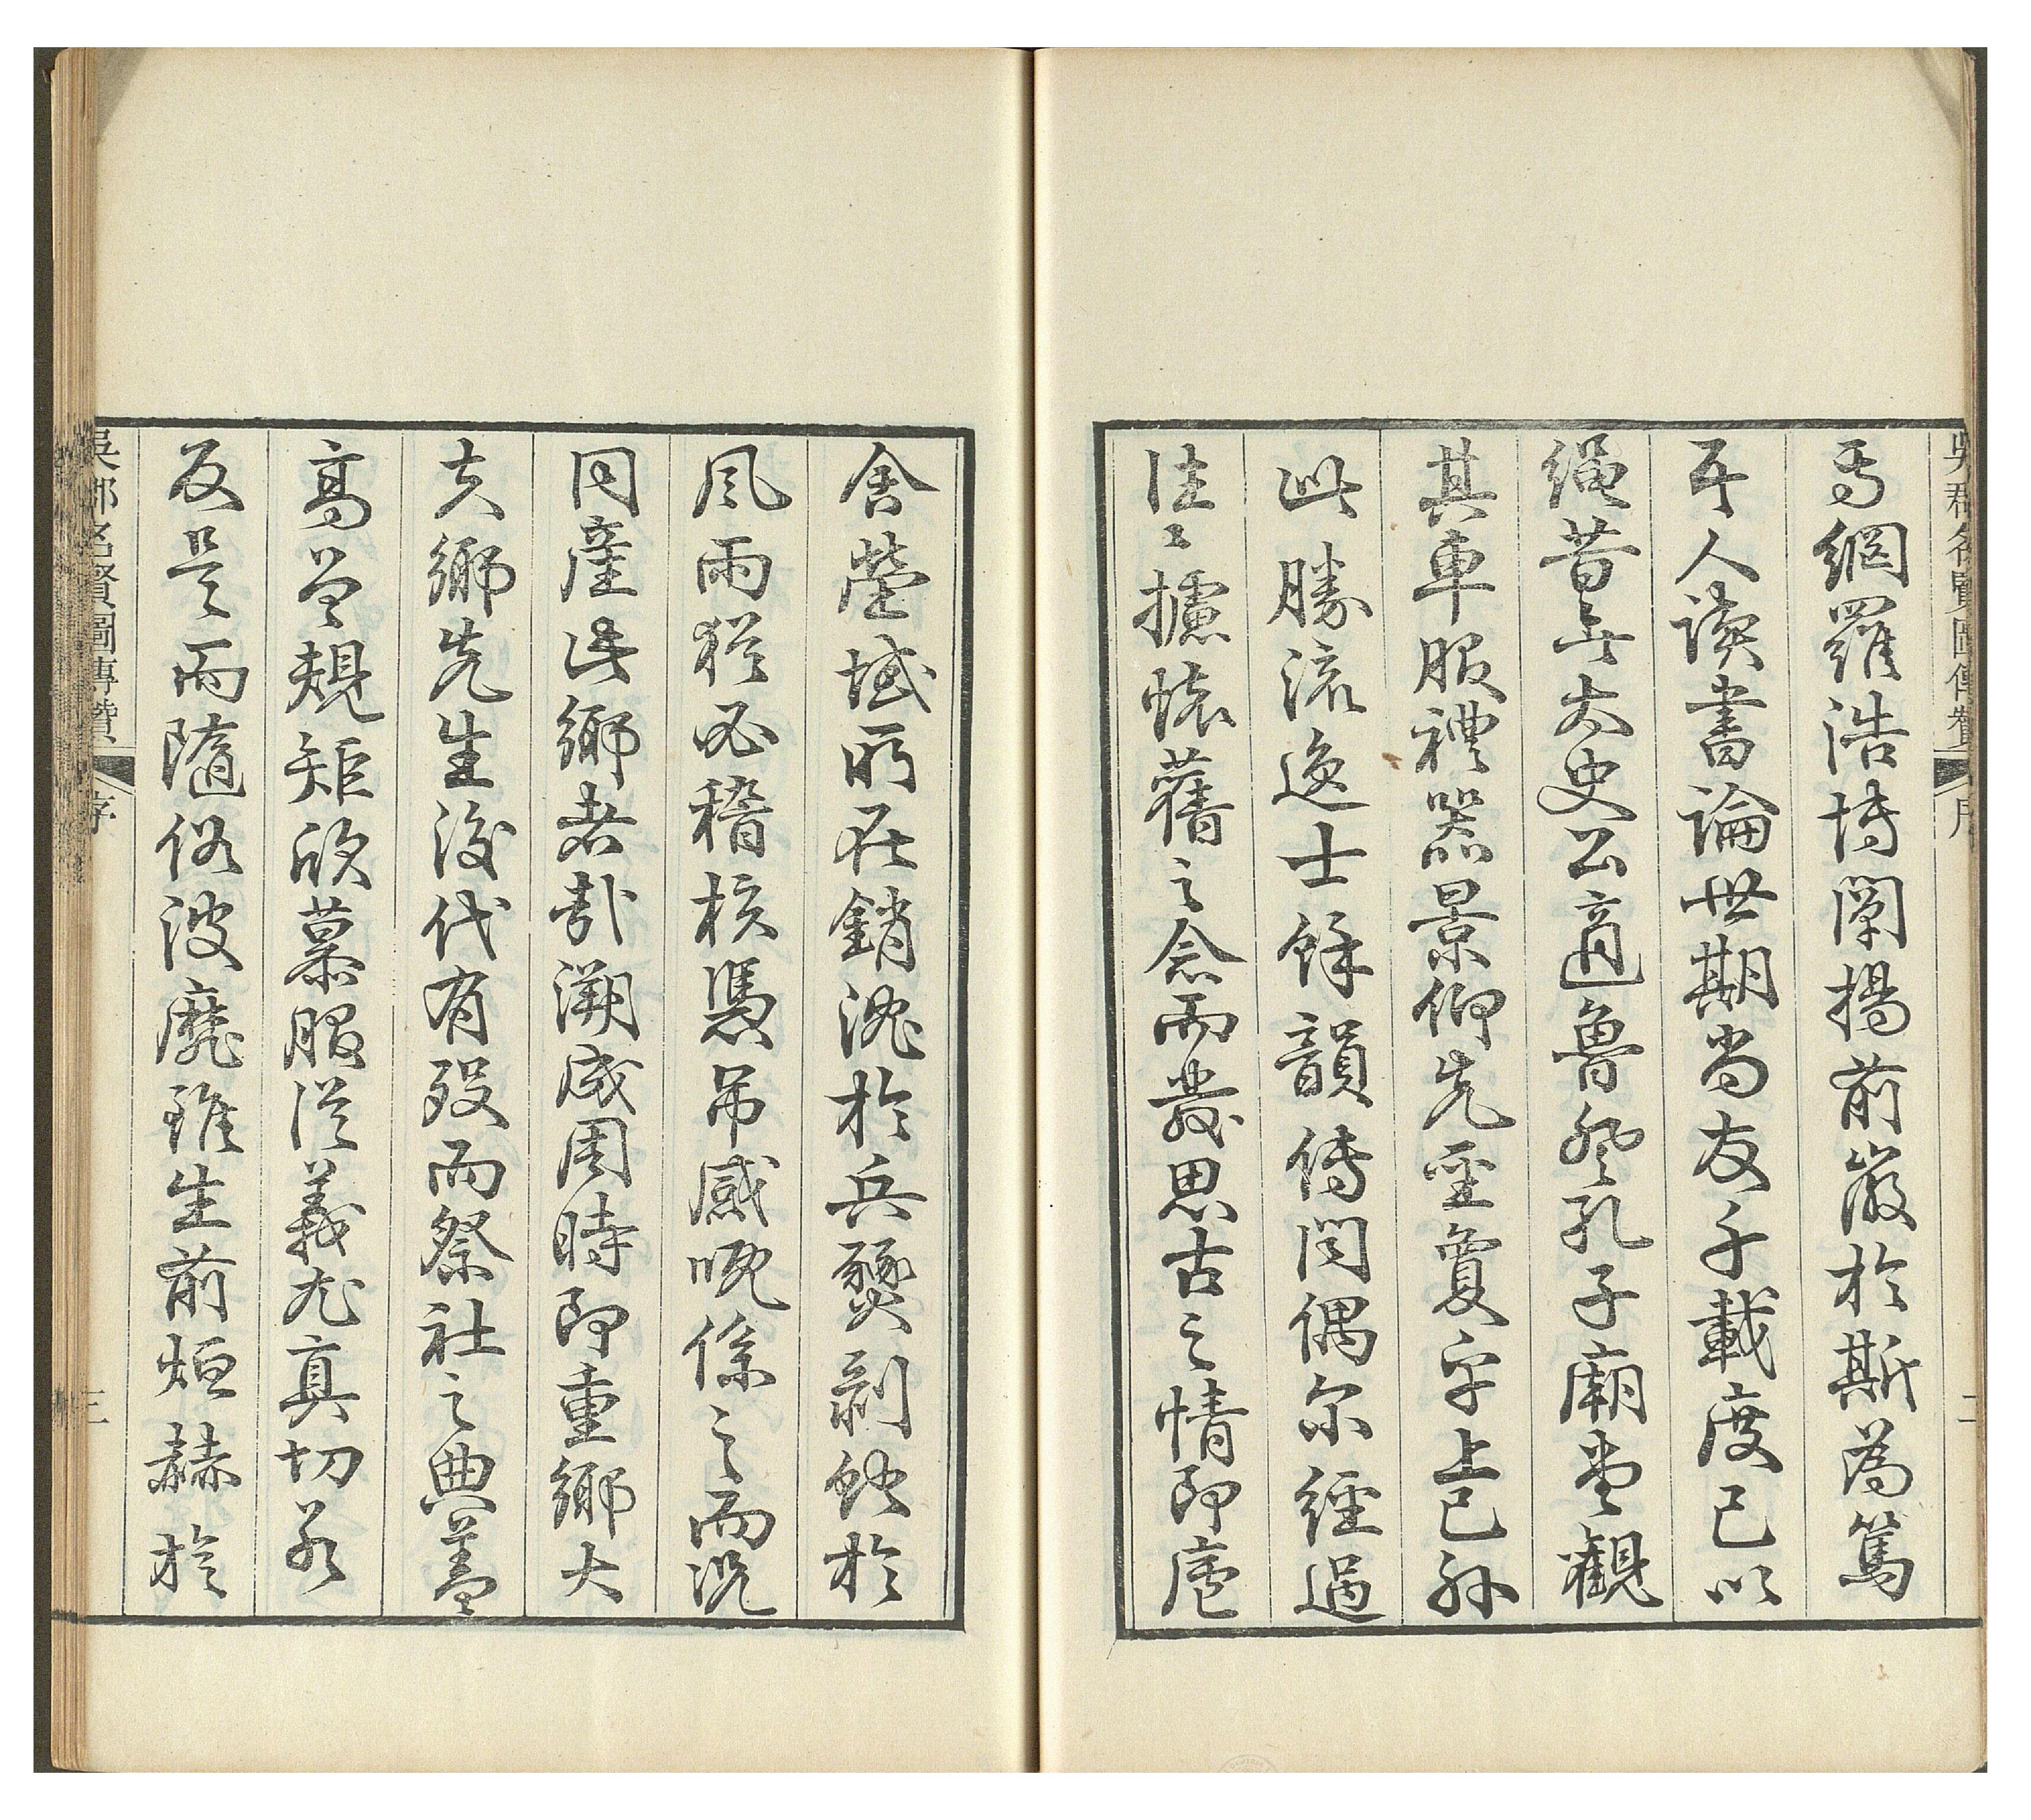 吳郡名賢圖傳贊 序 二
焉網羅浩博闡揚前徽於斯為篤
耳人讀書論世期尚友千載度己以
繩昔年太史公適魯登孔子廟堂觀
其車服禮器景仰先聖夐乎上已外
此勝流逸士餘韻傳聞偶尔經過
往〻攄懷舊之念而發思古之情即廬
舍塋域所在銷沈於兵燹剝蝕於
風雨猶必稽核憑吊感喟係之而況
同產此鄉者哉溯成周時即重鄉大
夫鄉先生後代有歿而祭社之典蓋
高曾規矩欣慕服從義尤真切若
反是而隨俗波靡雖生前烜赫於
吳郡名賢圖傳贊 序 三